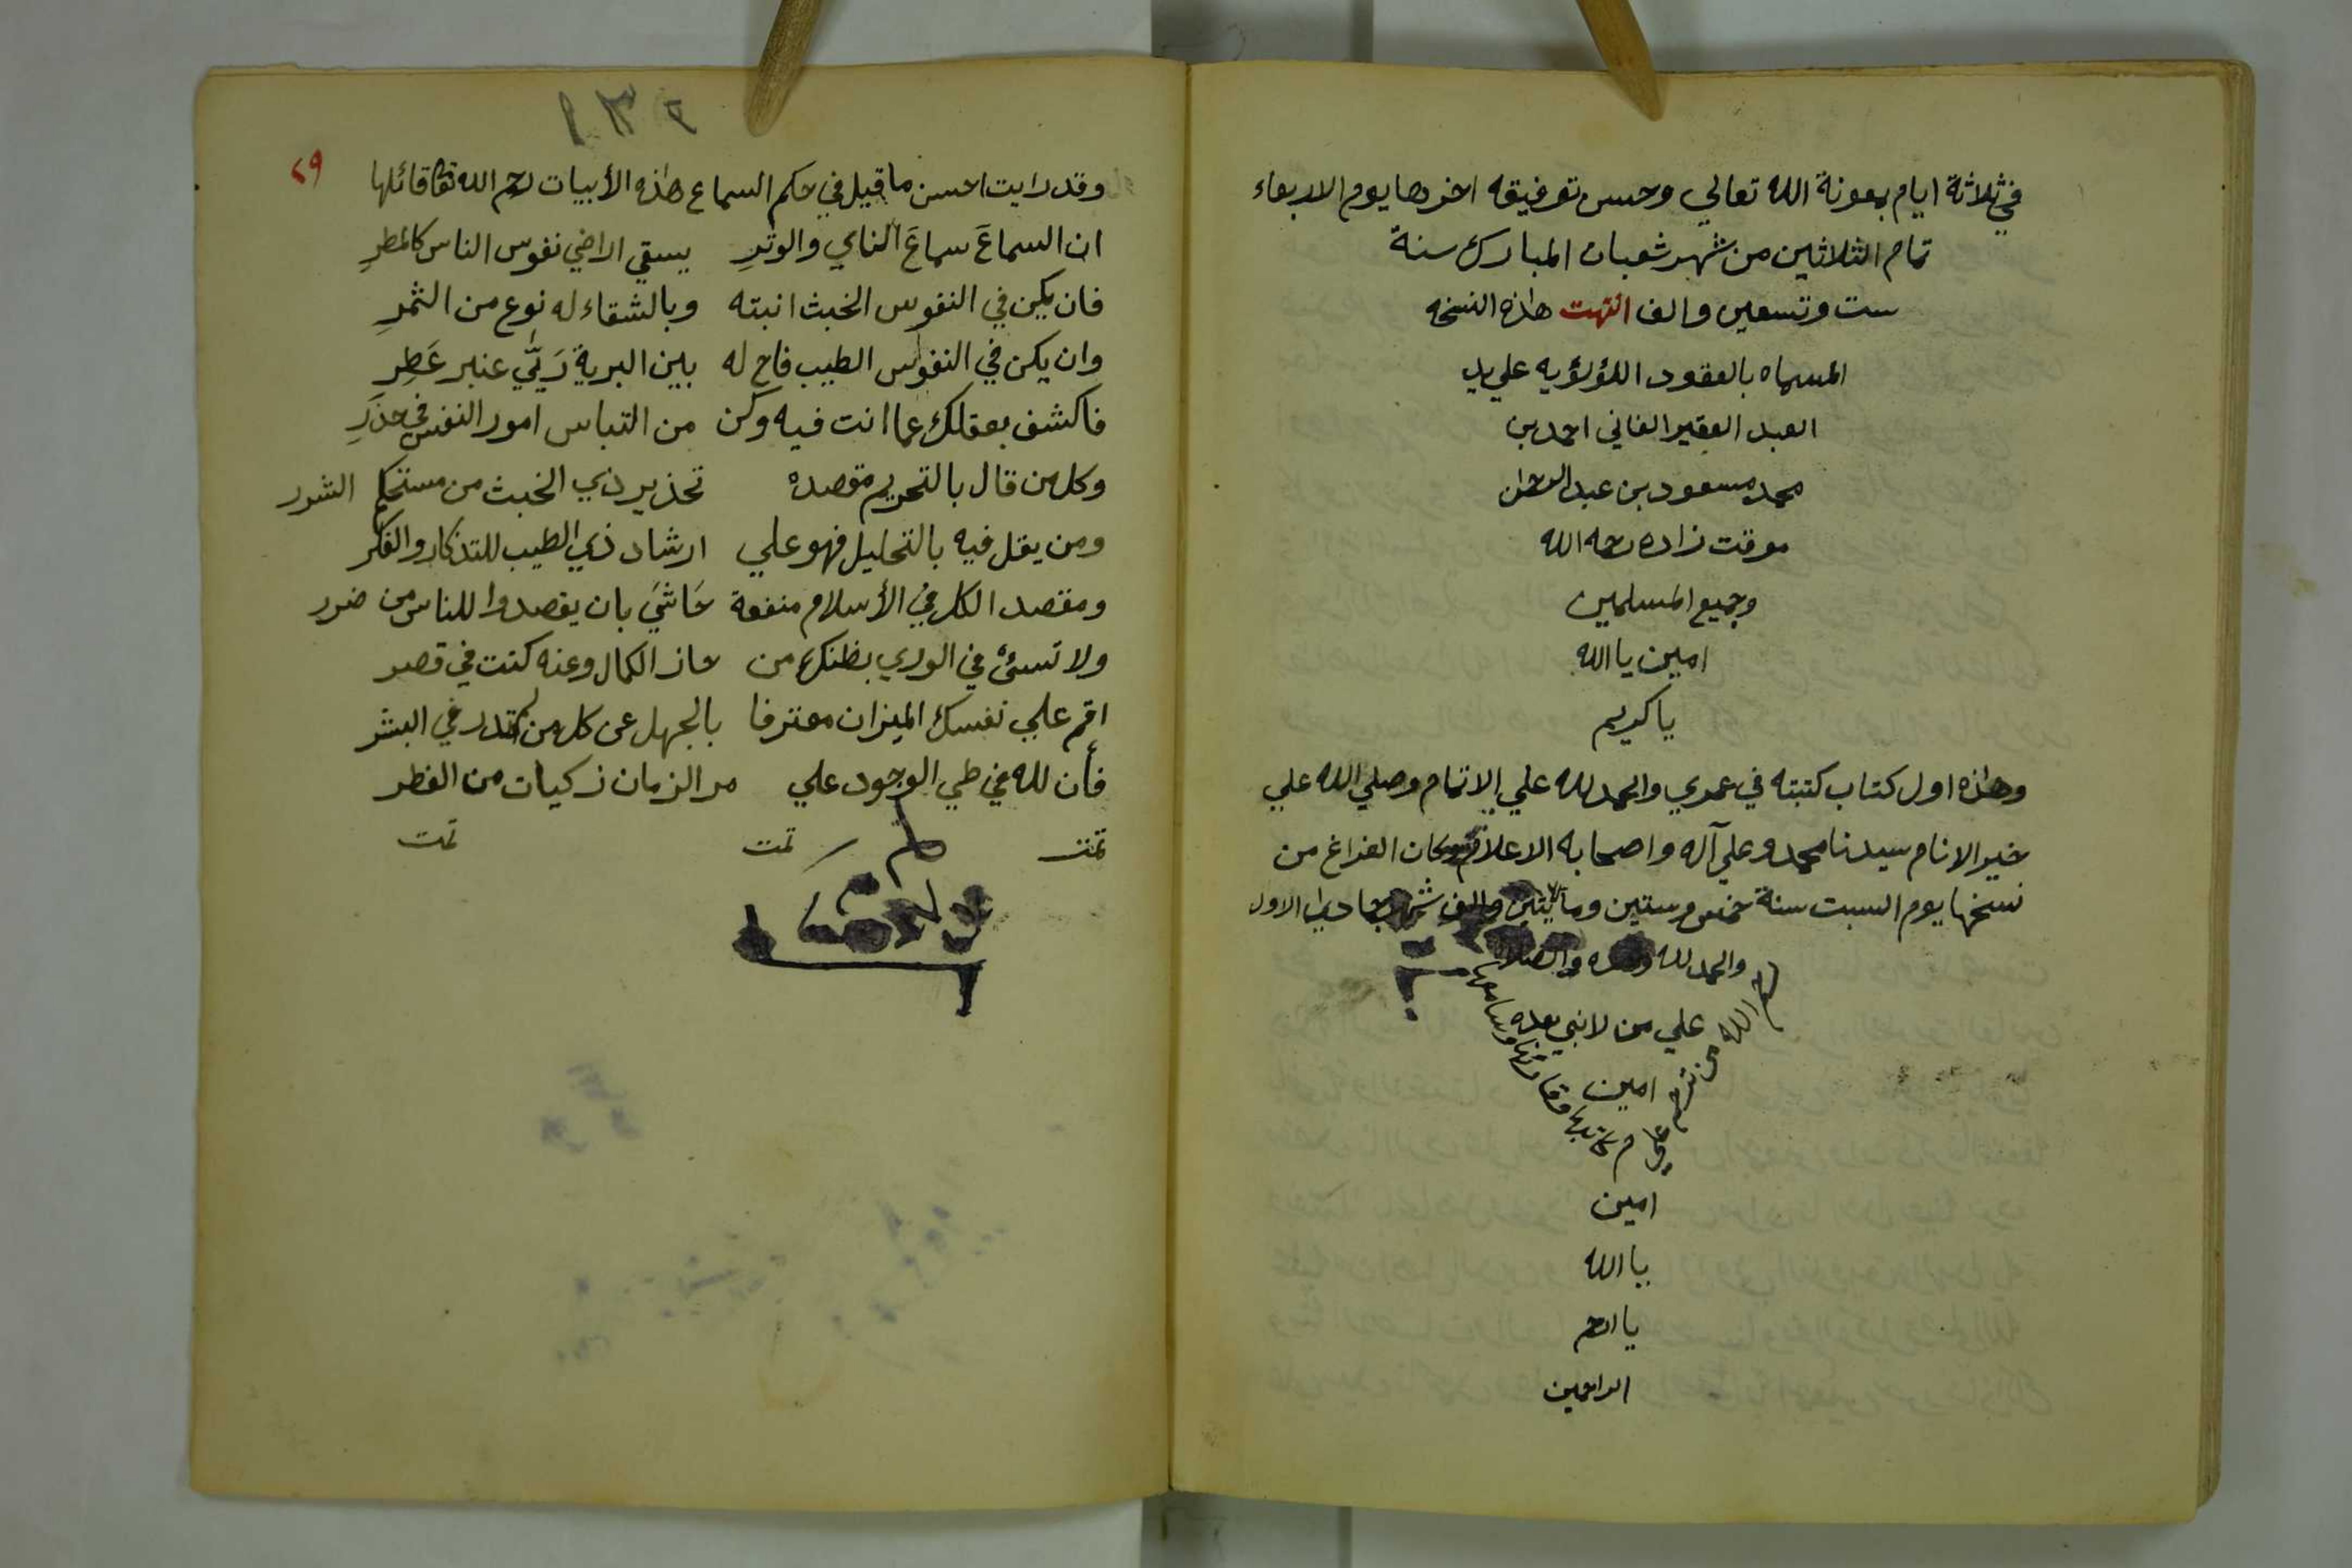 في ثلاثة ايام بمعونة الله تعالي وحسن توفيقه اخرها يوم الاربعاء
تمام الثلاثين من شهر شعبان المبارك سنة
ست وتسعين والف انتهت هذه النسخه
المسماه بالعقود اللؤلؤيه علي يد
العبد الفقير الفاني احمد بن
محمد مسعود بن عبد الرحمن
موقت زاده رحمه الله
وجميع المسلمين
امين يا الله
يا كريم
وهذه اول كتاب كتبته في عمري والحمد لله علي الاتمام وصلي الله علي
خير الانام سيدنا محمد وعلي آله واصحابه الاعلام وكان الفراغ من
نسخها يوم السبت سنة خمس وستين ومأيتين والف شهر جمادي الاول
والحمد لله وحده والصلاة
علي من لا نبي بعده
امين
رحم الله من ترحم علي
كاتبها وقارئها وسامعها
امين
يا الله
يا ارحم
الراحمين
٢٩
وقد رايت احسن ما قيل في حكم السماع هذه الأبيات رحم الله تعا قائلها
ان السماعَ سماعَ الناي والوترِ يسقي الاضي نفوس الناس كالمطرِ
فان يكن في النفوس الخبث انبته وبالشقاء له نوع من الثمرِ
وان يكن في النفوس الطيب فاح له بين البرية رَيَّي عنبر عَطِرِ
فاكشف بعقلك عما انت فيه وكن من التباس امور النفس في حذرِ
وكل من قال بالتحريم مقصده تحذير ذي الخبث من مستحكم الشرر
ومن يقل فيه بالتحليل فهو علي ارشاد ذي الطيب للتذكار والفكر
ومقصد الكل في الأسلام منفعة حَاشَي بان يقصدوا للناس من ضرر
ولا تسئ في الوري بظنك من حاز الكمال وعنه كنت في قصر
اقم علي نفسك الميزان معترفا بالجهل عن كل من لم تدر في البشر
فأن لله في طي الوجود علي مر الزمان زكيات من الفطر
تمت تمت تمت